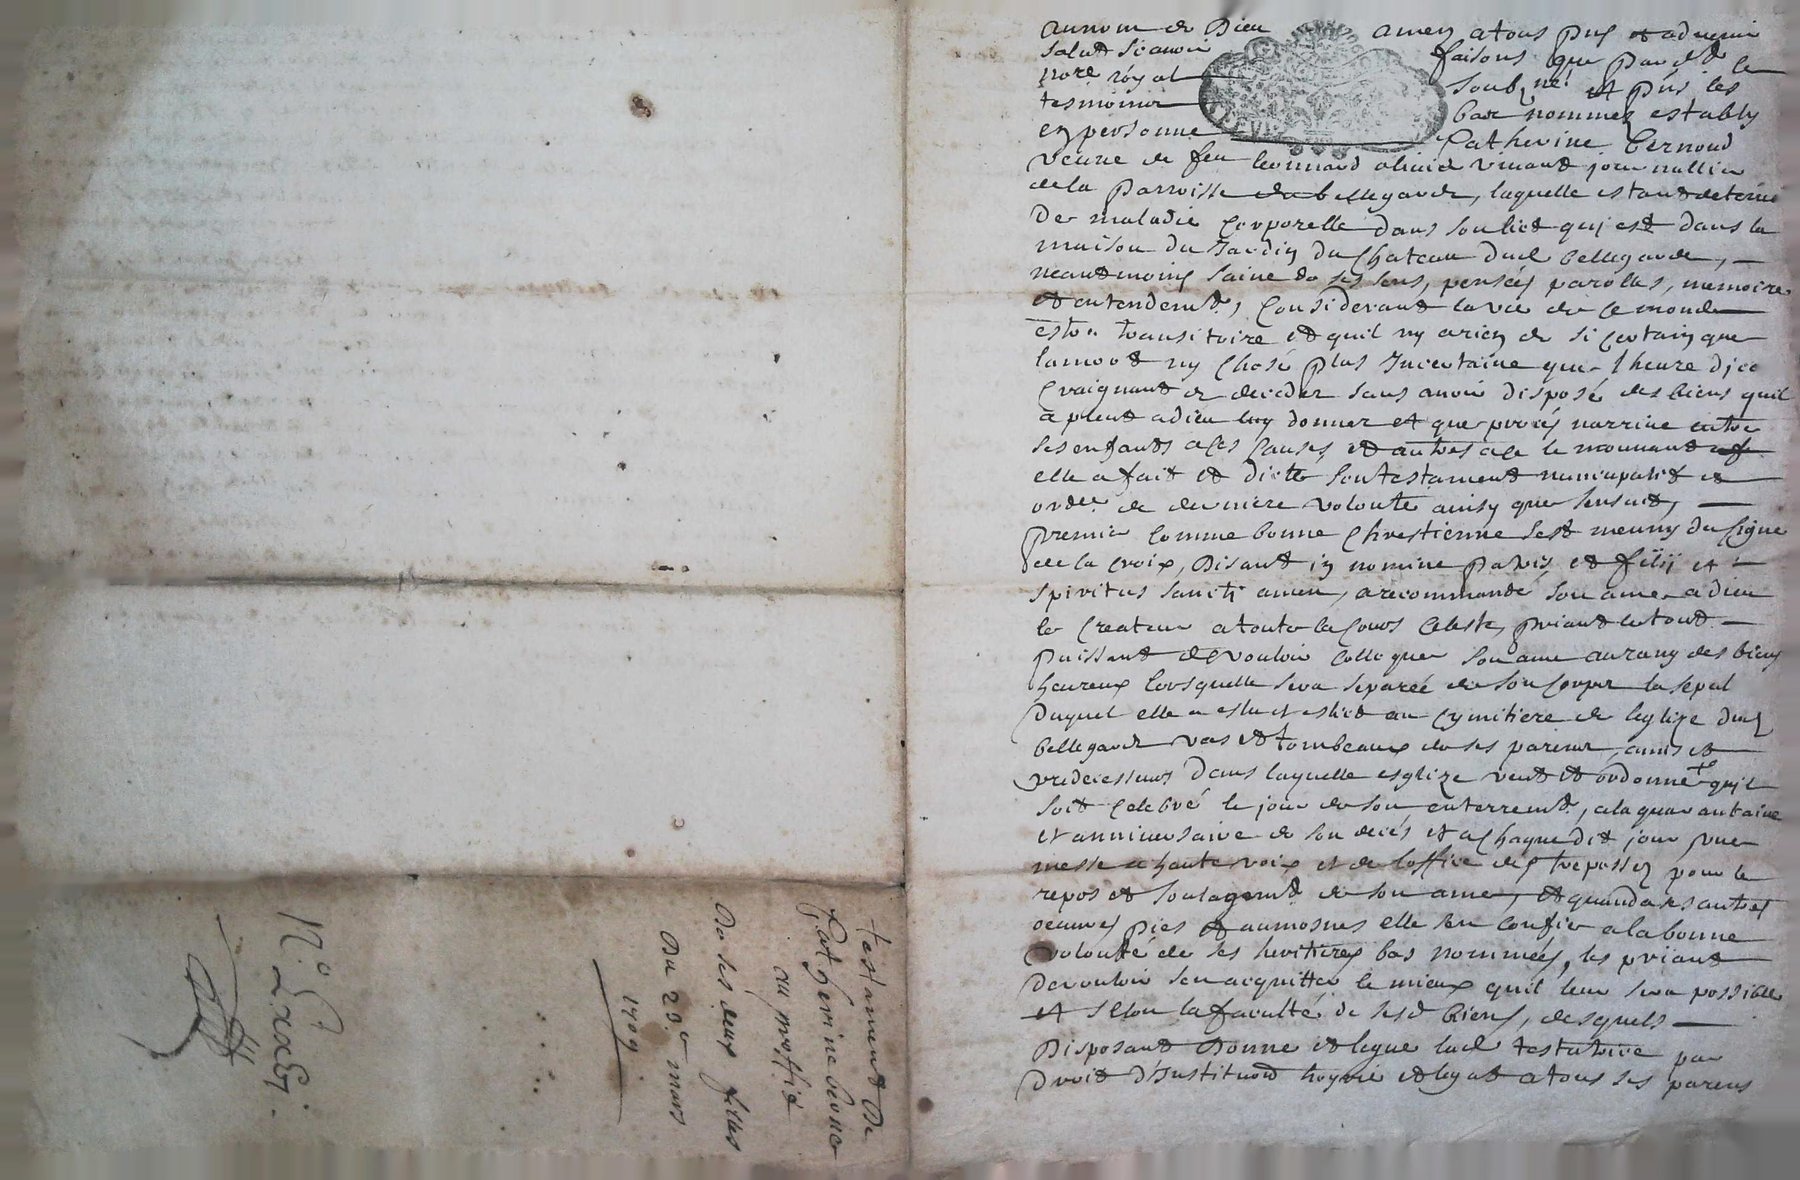 au nom de Dieu amen a tous pns et advenir
salut scavoir faisons que pard le
nore royal soubzné et pns les
tesmoins bas nommez estably
en personne Catherine Bernoud
veuve de feu leonnard vivant journallier
de la parroisse de bellegarde, laquelle estant detenue
De maladie Corporelle dans son lict qui est dans la
maison du Jardin du Chateau dud bellegarde,
neantmoins saine de ses sens, pensées parolles, memoire
et entendemt, Considerant la vie de ce monde
estre transitoire et quil ny a rien de si certain que
la mort ny Chose plus Incertaine que lheure dicelle
Craignant de deceder sans avoir disposé des biens quil
a pleut a dieu luy donner et que procés narrive entre
ses enfants a Ces Causes et autres a ce le mouvant
elle a fait et dicté son testament nuncupatif et
ordce de derniere volonté ainsy que sensuit,
premier Comme bonne Chrestienne sest meuny du signe
de la Croix, Disant in nomine patris et filii et
spiritus sancti amen, a recommandé son ame a dieu
le Createur a toute la Cours Celeste, priant le tout
puissant de vouloir Colloquer son ame au rang des biens
heureux lorsquelle sera separée de son Corps la sepul
Duquel elle a eslu et eslict au Cymitiere de leglize dud
bellegarde vas et tombeaux de ses parens, amis et
predecesseurs Dans laquelle esglize veut et ordonne quil
soit Celebré le jour de son enterremt, a la quarantaine
et anniversaire de son decés et a Chaque dit jour une
messe a haute voix et de loffice des trepassez pour le
repos et soulagemt de son ame, et quand a ses autres
oeuvres pies et aumosnes elle sen Confie a la bonne
volonté de ses heritieres bas nommées, les priant
De vouloir sen acquitter le mieux quil leur sera possible
et selon la faculté de sesd biens, desquels
Disposant Donne et legue lad testatrice par
Droit D'Institution et legat a tous ses parens
testament De
Catherine bernod
au proffit
De ses deux filles
Du 23e mars
1709